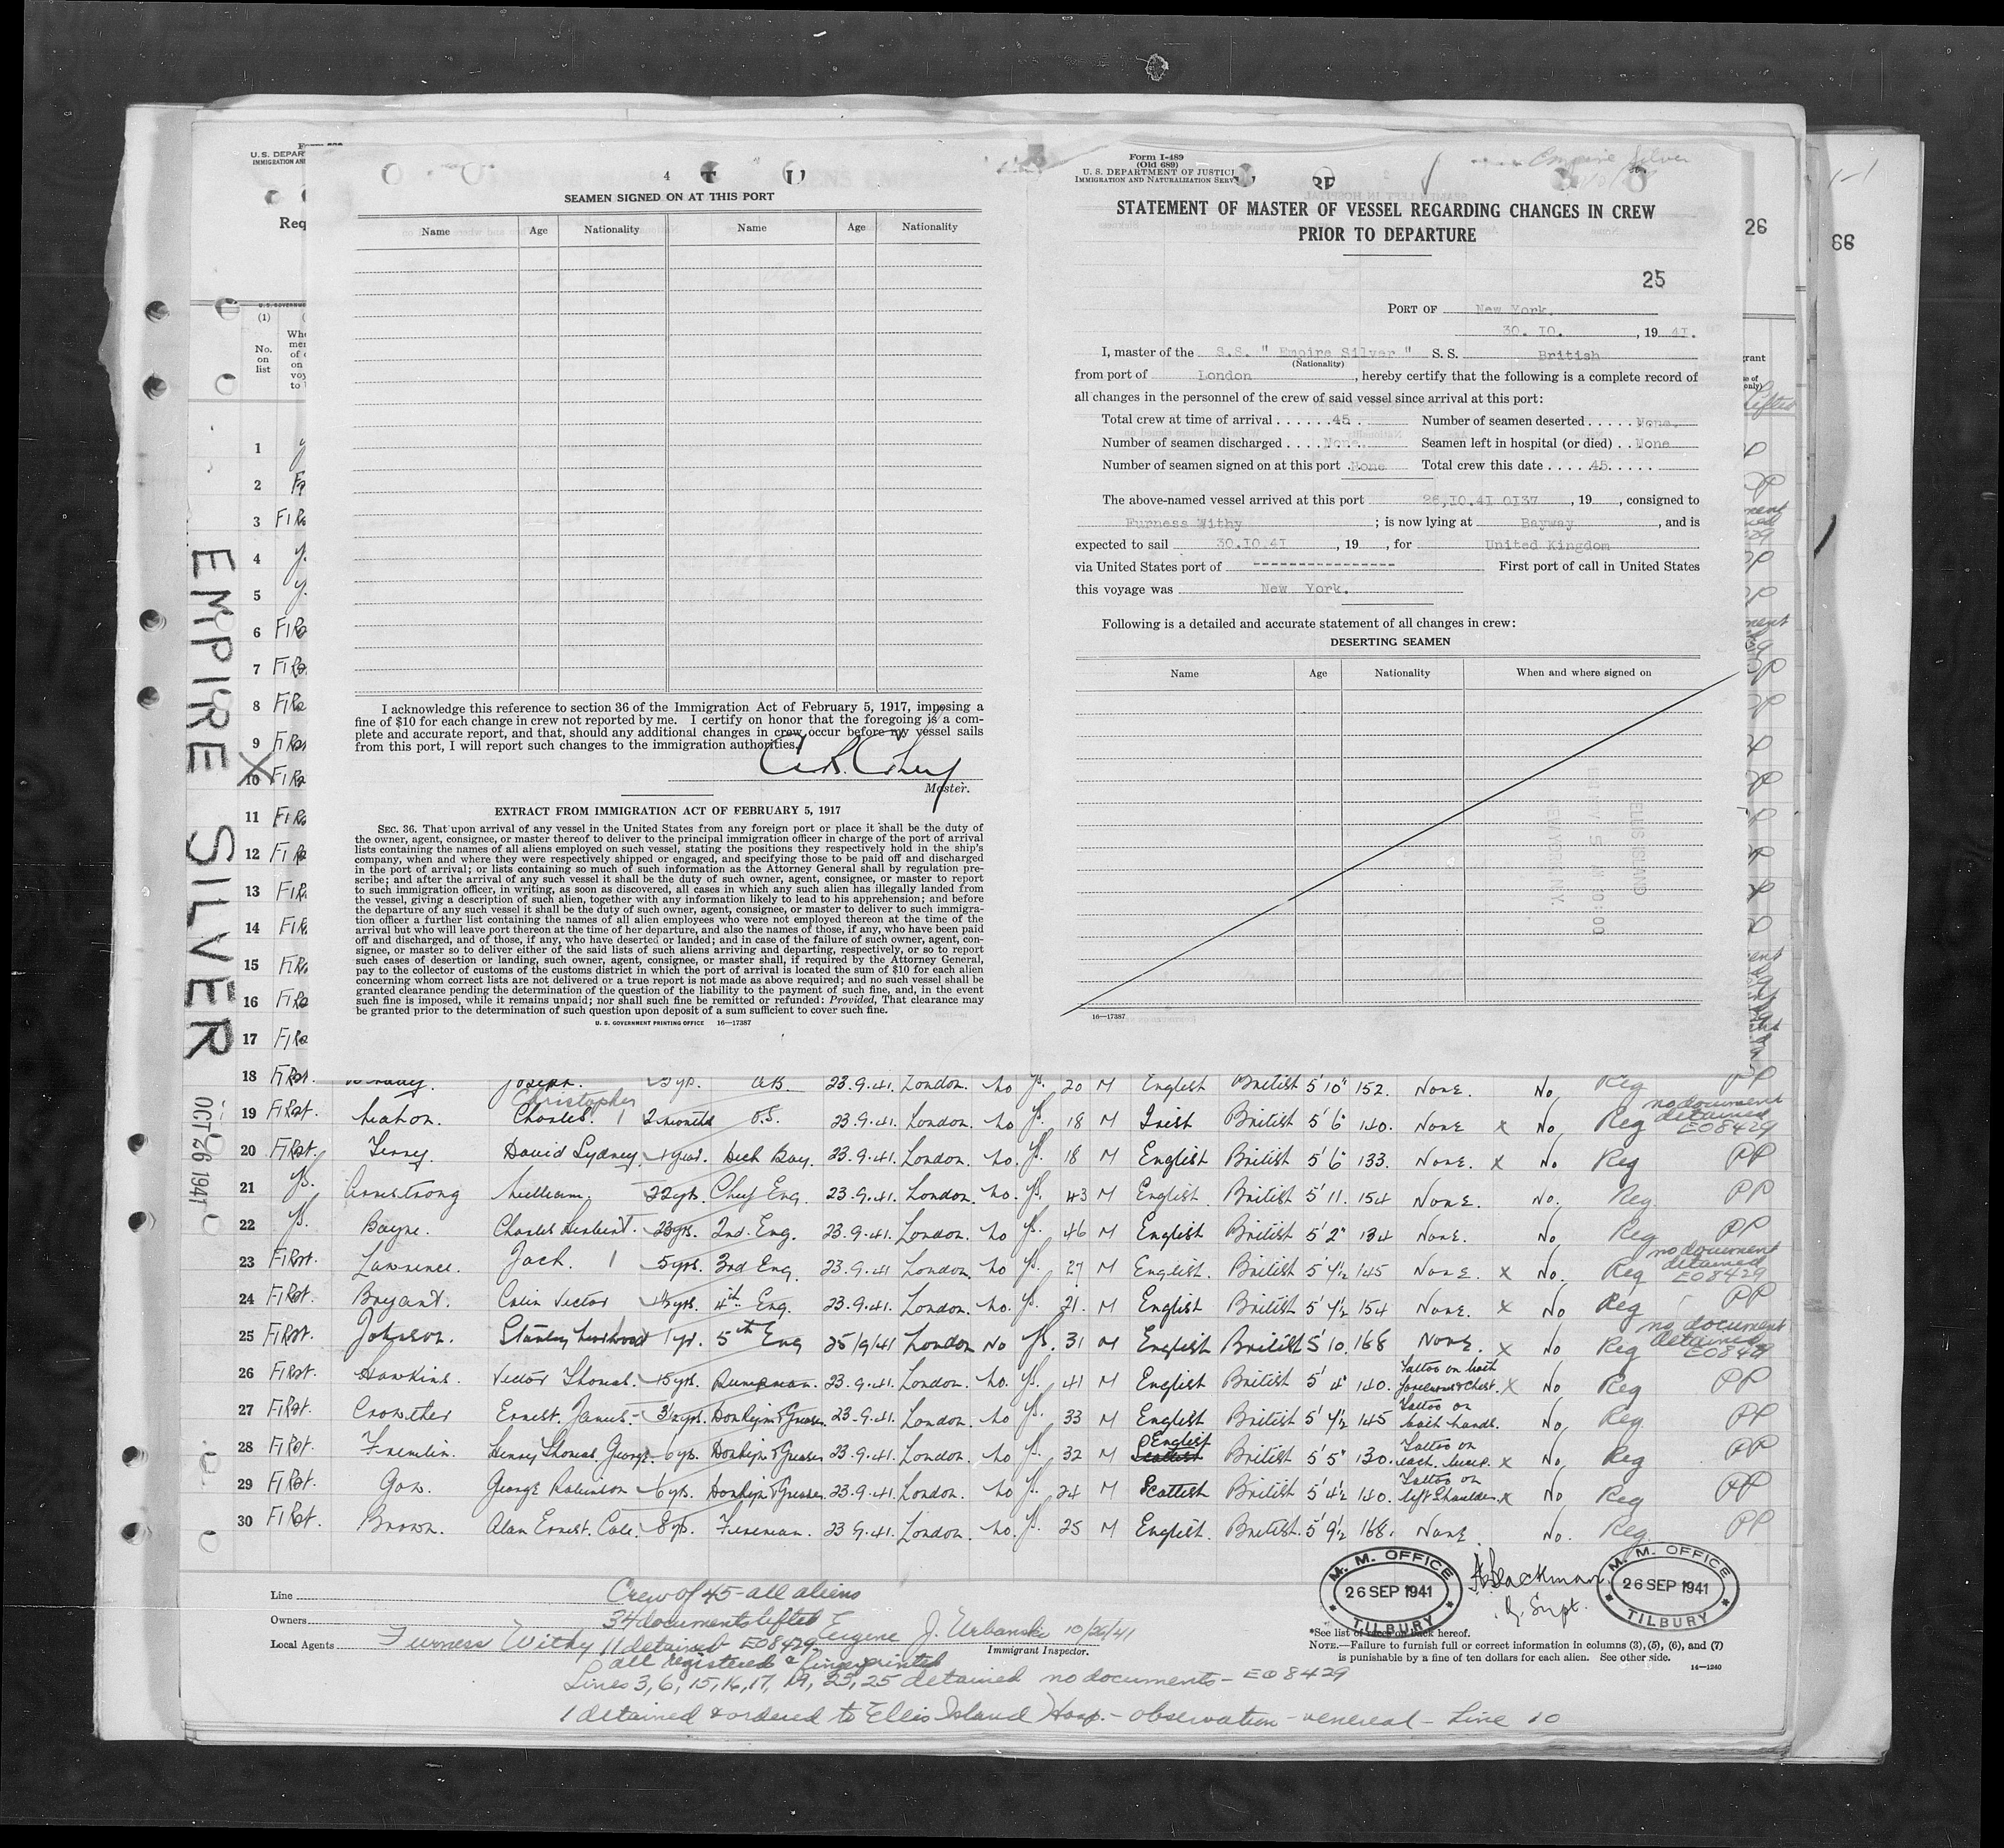 4
SEAMEN SIGNED ON AT THIS PORT
Name Age Nationality Name Age Nationality
I acknowledge this reference to section 36 of the Immigration Act of February 5, 1917, imposing a
fine of $10 for each change in crew not reported by me. I certify on honor that the foregoing is a com-
plete and accurate report, and that, should any additional changes in crew occur before my vessel sails
from this port, I will report such changes to the immigration authorities.
Master.
EXTRACT FROM IMMIGRATION ACT OF FEBRUARY 5, 1917
SEC. 36. That upon arrival of any vessel in the United States from any foreign port or place it shall be the duty of
the owner, agent, consignee, or master thereof to deliver to the principal immigration officer in charge of the port of arrival
lists containing the names of all aliens employed on such vessel, stating the positions they respectively hold in the ship's
company, when and where they were respectively shipped or engaged, and specifying those to be paid off and discharged
in the port of arrival; or lists containing so much of such information as the Attorney General shall by regulation pre-
scribe; and after the arrival of any such vessel it shall be the duty of such owner, agent, consignee, or master to report
to such immigration officer, in writing, as soon as discovered, all cases in which any such alien has illegally landed from
the vessel, giving a description of such alien, together with any information likely to lead to his apprehension; and before
the departure of any such vessel it shall be the duty of such owner, agent, consignee, or master to deliver to such immigra-
tion officer a further list containing the names of all alien employees who were not employed thereon at the time of the
arrival but who will leave port thereon at the time of her departure, and also the names of those, if any, who have been paid
off and discharged, and of those, if any, who have deserted or landed; and in case of the failure of such owner, agent, con-
signee, or master so to deliver either of the said lists of such aliens arriving and departing, respectively, or so to report
such cases of desertion or landing, such owner, agent, consignee, or master shall, if required by the Attorney General,
pay to the collector of customs of the customs district in which the port of arrival is located the sum of $10 for each alien
concerning whom correct lists are not delivered or a true report is not made as above required; and no such vessel shall be
granted clearance pending the determination of the question of the liability to the payment of such fine, and, in the event
such fine is imposed, while it remains unpaid; nor shall such fine be remitted or refunded: Provided, That clearance may
be granted prior to the determination of such question upon deposit of a sum sufficient to cover such fine.
U. S. GOVERNMENT PRINTING OFFICE 16—17387
Empire Silver
Form I-489
(Old 689)
U. S. DEPARTMENT OF JUSTICE
IMMIGRATION AND NATURALIZATION SERV
STATEMENT OF MASTER OF VESSEL REGARDING CHANGES IN CREW
PRIOR TO DEPARTURE
25
PORT OF New York.
30. IO. , 19 41.
I, master of the S.S. " Empire Silver " S. S. British
(Nationality)
from port of London , hereby certify that the following is a complete record of
all changes in the personnel of the crew of said vessel since arrival at this port:
Total crew at time of arrival 45. Number of seamen deserted None.
Number of seamen discharged None. Seamen left in hospital (or died) None
Number of seamen signed on at this port None Total crew this date 45.
The above-named vessel arrived at this port 26.IO.4I 0I37 , 19 , consigned to
Furness Withy ; is now lying at Bayway , and is
expected to sail 30.IO.4I , 19 , for United Kingdom
via United States port of ---------------- First port of call in United States
this voyage was New York.
Following is a detailed and accurate statement of all changes in crew:
DESERTING SEAMEN
Name Age Nationality When and where signed on
16—17387
26
66
U. S. DEPAR
IMMIGRATION AN
Req
(1)
No. on list
EMPIRE SILVER
OCT 26 1941
1
2
3 FIRs
4
5
6 FIRs
7 FIRs
8 FIRs
9 FIRs
10 FIRs
11 FIRs
12 FIRs
13 FIRs
14 FIRs
15 FIRs
16 FIRs
17 FIRs
18 FIRst. Joseph. AB. 23.9.41. London. No Ys. 20 M English British 5'10" 152. None. No, Reg PP
Christopher
19 FIRst. Mahon. Charles. 2 months O.S. 23.9.41. London. No Ys. 18 M Irish British 5'6" 140. None x No, Reg no document detained EO8429
20 FIRst. David Sydney. 1 year. Deck Boy. 23.9.41. London. No. Ys. 18 M English British 5'6" 133. None. x No Reg PP
21 Ys. Armstrong William. 22 yrs. Chief Eng. 23.9.41. London. No. Ys. 43 M English British 5'11. 154 None. No. Reg. PP
22 Ys. Bayne. Charles Herbert. 23 yrs. 2nd. Eng. 23.9.41. London. No Ys. 46 M English British 5'2" 134 None. No, Reg PP
23 FIRst. Lawrence. Jack. 5 yrs. 3rd Eng. 23.9.41 London. No Ys. 27 M English. British 5'7½ 145 None. x No. Reg no document detained EO8429
24 FIRst. Bryant. Colin Victor 4th Eng. 23.9.41. London. No. Ys. 21. M English British 5'7½ 154 None. x No Reg PP
25 FIRst. Johnson. Stanley 1 yr. 5th Eng 25/9/41 London No Ys. 31 M English British 5'10. 168 None x No Reg no document detained EO8429
26 FIRst. Hawkins. Victor Thomas. 15 yrs. Pumpman. 23.9.41. London. No. Ys. 41 M English British 5'4" 140. Tattoo on both forearms & chest. x No Reg PP
27 FIRst. Crowther Ernest James. 3½ yrs. Donkeyman & Greaser 23.9.41. London. No Ys. 33 M English British 5'7½ 145 Tattoo on both hands. No, Reg. PP
28 FIRst. Fremlin. Henry Thomas George. 6 yrs. Donkeyman & Greaser 23.9.41. London. No Ys. 32 M English British 5'5" 130. Tattoo on each x No, Reg PP
29 FIRst. Gow. George Robinson 6 yrs. Donkeyman & Greaser 23.9.41. London. No Ys. 24 M Scottish British 5'4½ 140. Tattoo on left shoulder x No Reg PP
30 FIRst. Brown. Alan Ernest. Cole. 8 yrs. Fireman. 23.9.41. London. No. Ys. 25 M English. British. 5'9½ 168. None No. Reg. PP
M. M. OFFICE 26 SEP 1941 TILBURY
Supt.
M. M. OFFICE 26 SEP 1941 TILBURY
Line Crew of 45 all aliens
Owners 34 documents lifted Eugene J. Urbanski 10/26/41
Local Agents Furness Withy 11 detained EO8429 Immigrant Inspector.
all registered & fingerprinted
Lines 3, 6, 15, 16, 17, 19, 23, 25 detained no documents - EO 8429
1 detained & ordered to Ellis Island Hosp. - observation - venereal - Line 10
*See list of races on back hereof.
NOTE.—Failure to furnish full or correct information in columns (3), (5), (6), and (7)
is punishable by a fine of ten dollars for each alien. See other side.
14—1240